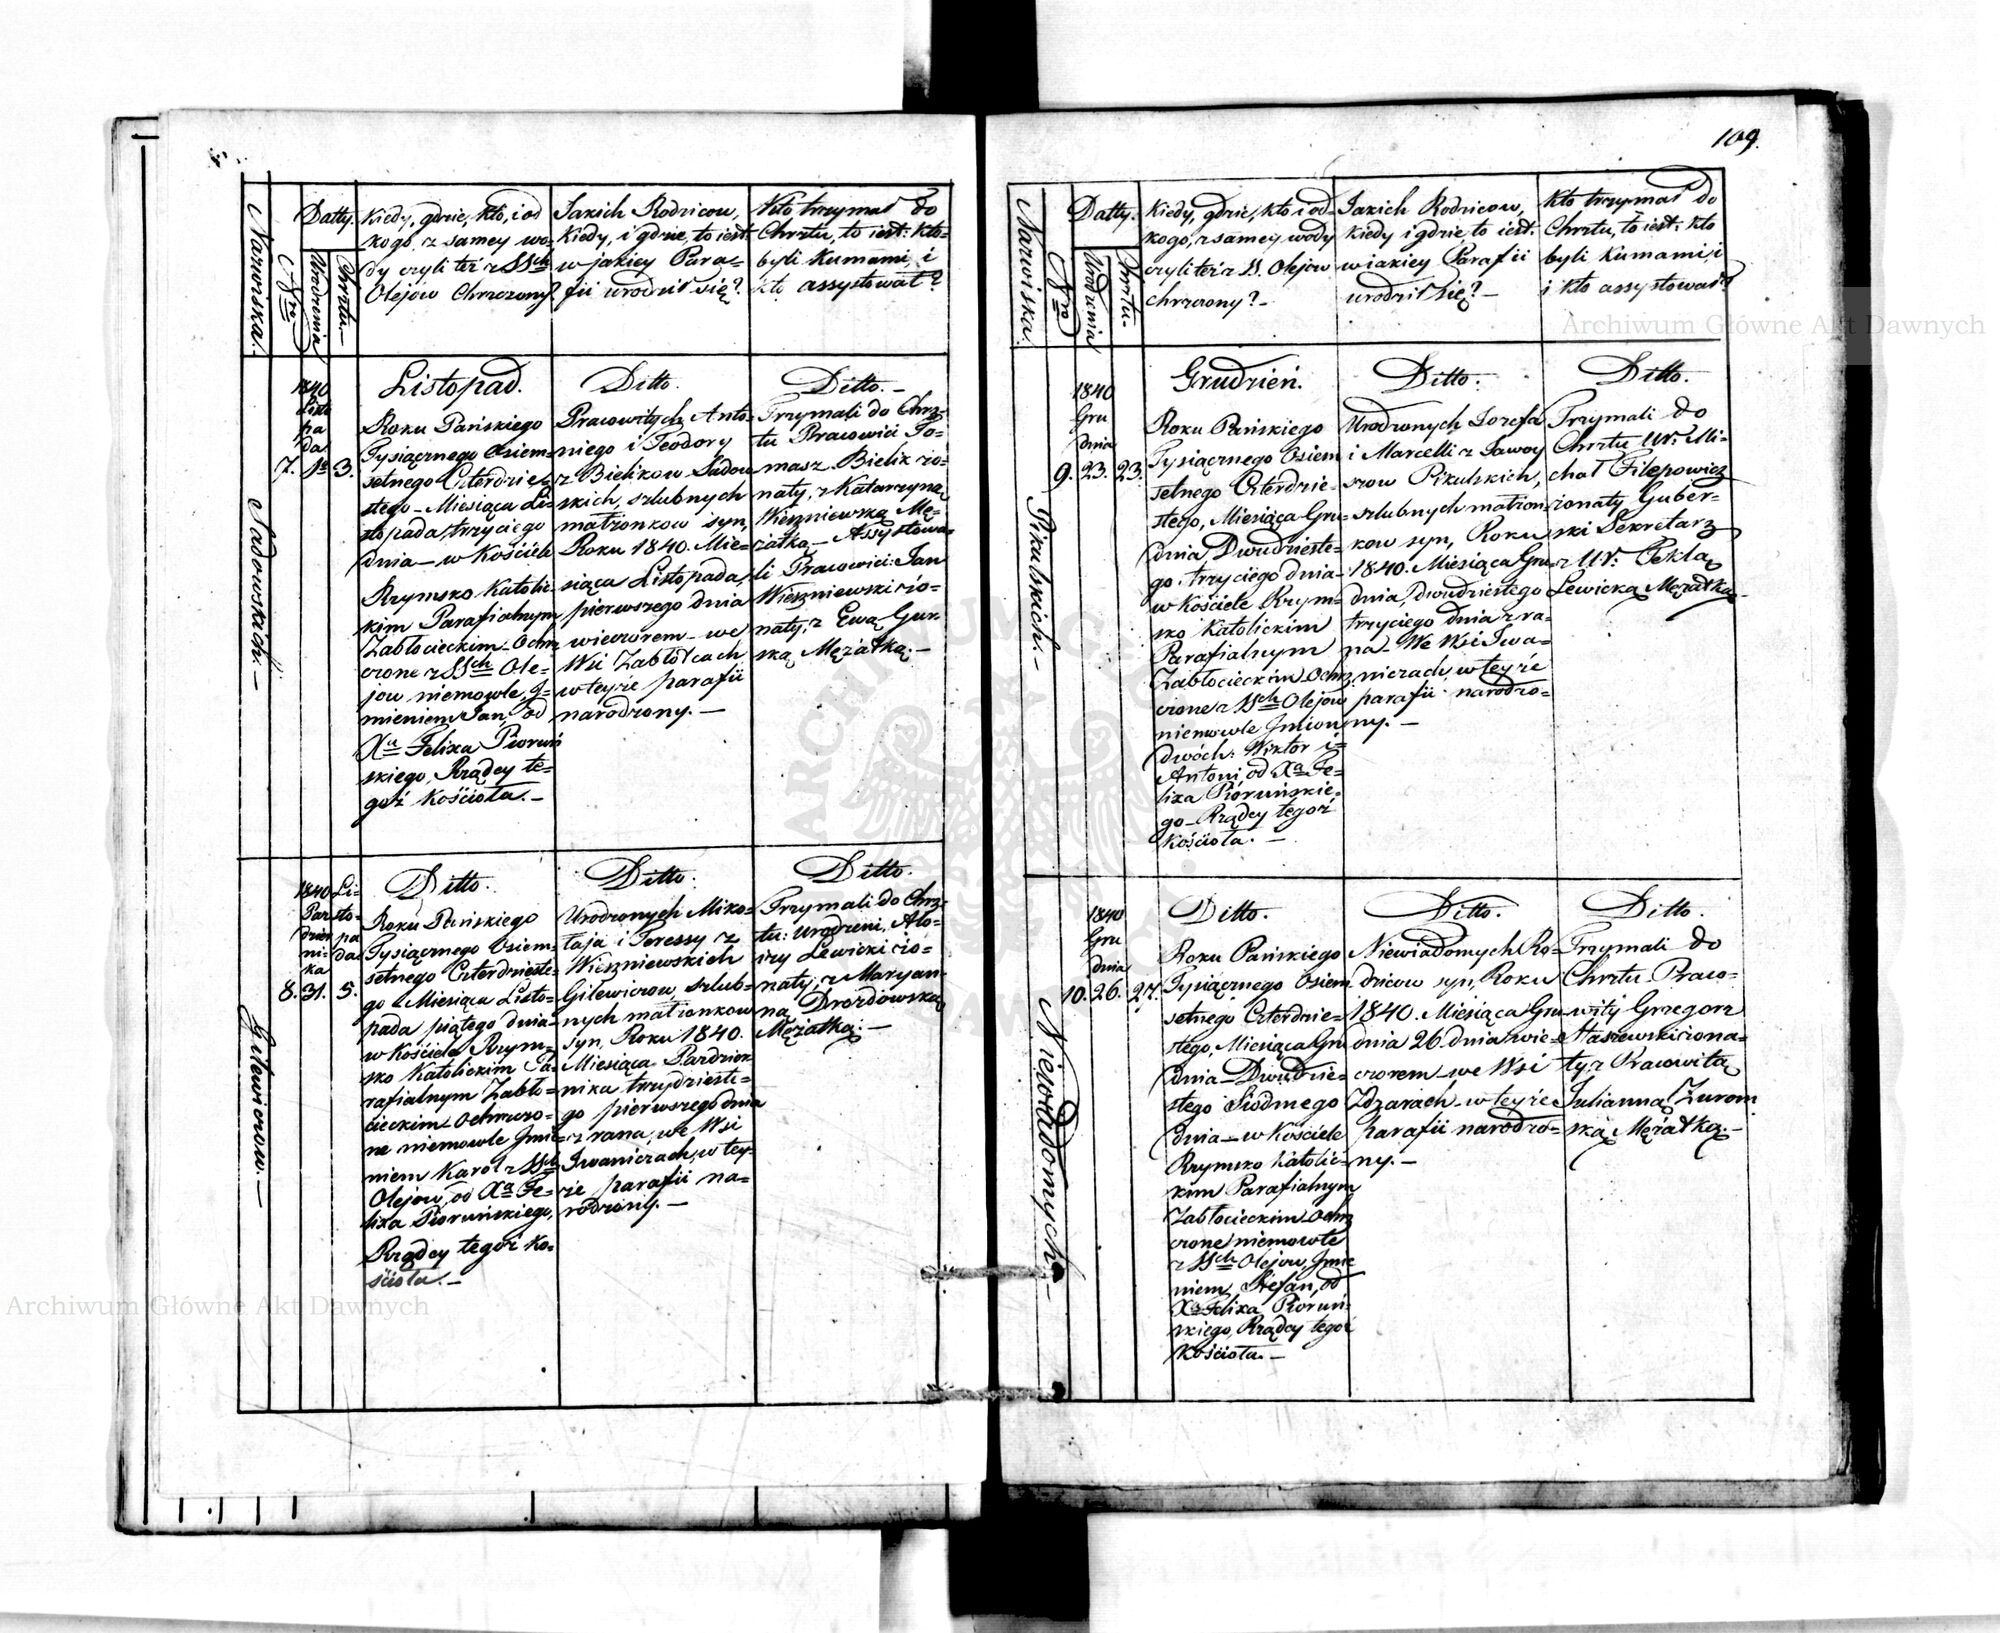 109.
Nazwiska.
Nro
Datty.
Urodzenia
Chrztu.
Kiedy, gdzie, kto, i od
kogo, z samey wo=
dy czyli też z SSch
Olejów Chrzczony?
Jakich Rodzicow,
Kiedy, i gdzie, to iest:
w jakiey Para=
fii urodził się?
Kto trzymał do
Chrztu, to iest: kto=
byli Kumami, i
kto assystował?
Sadowskich. —
1840
Listo
pa
da
7. 1go 3.
Listopad.
Roku Pańskiego
Tysiącznego Osiem=
setnego Czterdzie=
stego — Miesiąca Li=
stopada, trzyciego
dnia — w Kościele
Rzymsko Katolic=
kim Parafialnym
Zabłocieckim — Ochrz
czone z SSch Ole=
jow niemowle, J=
mieniem Jan, od
Xa Felixa Pioruń
skiego, Rządcy te=
goż Kościoła. —
Ditto.
Pracowitych Anto=
niego i Teodory
z Bielikow Sadow
skich, szlubnych
matżonkow syn,
Roku 1840. Mie=
siąca Listopada,
pierwszego dnia
wieczorem — we
Wsi Zabłotcach
w teyże parafii
narodzony. —
Ditto. —
Trzymali do Chrz=
tu Pracowici To=
masz Bielik żo=
naty, z Katarzyną
Wiszniewską Mę=
żatką — Assystowa=
li Pracowici: Jan
Wiszniewski żo=
naty, z Ewą Guz
ską Mężatką. —
Gilewiczow. —
1840 Li=
Paz sto=
dzier pa
ni= da
ka
8. 31. 5.
Ditto.
Roku Pańskiego
Tysiącznego Osiem=
setnego Czterdzieste=
go Miesiąca Listo=
pada piątego dnia
w Kościele Rzym=
sko Katolickim Pa=
rafialnym Zabło=
cieckim Ochrzczo=
ne niemowle Jmie=
niem Karol z SSch
Olejow, od Xa Fe=
lixa Pioruńskiego,
Rządcy tegoż Ko=
ścioła. —
Ditto.
Urodzonych Miko=
łaja i Teressy z
Wiszniewskich
Gilewiczow szlub=
nych matżonkow
syn, Roku 1840.
Miesiąca Pazdzier
nika, trzydzieste=
go pierwszego dnia
z rana, we Wsi
Jwaniczach, w tey=
że parafii na=
rodzony. —
Ditto.
Trzymali do Chrz=
tu: Urodzeni, Alo=
izy Lewicki żo=
naty, z Maryan=
ną Drozdowską
Mężatką. —
Nazwiska.
Nro
Datty.
Urodzenia
Chrztu.
Kiedy, gdzie, kto i od=
kogo, z samey wody
czyli też z SS. Olejow
chrzczony? —
Jakich Rodzicow,
kiedy i gdzie, to iest:
w iakiey Parafii
urodził się? —
Kto trzymał do
Chrztu, to iest: kto
byli Kumami, i
i kto assystował?
Pikulskich. —
1840
Gru
dnia
9. 23. 23.
Grudzień.
Roku Pańskiego
Tysiącznego Osiem
setnego Czterdzie=
stego, Miesiąca Gru
dnia, Dwudzieste=
go trzyciego dnia —
w Kościele Rzym=
sko Katolickim
Parafialnym
Zabłocieckim — Ochrz
czone z SSch Olejow
niemowle Jmion
dwóch: Wiktor i=
Antoni, od Xa Fe=
lixa Pioruńskie=
go — Rządcy tegoż
Kościoła. —
Ditto.
Urodzonych Jozefa
i Marcelli z Jawoy
szow Pikulskich,
szlubnych matżon
kow syn, Roku
1840. Miesiąca Gru
dnia, dwudziestego
trzyciego dnia z ra=
na — We Wsi Jwa=
niczach, w teyże
parafii narodzo=
ny. —
Ditto.
Trzymali do
Chrztu Ur: Mi=
chał Filepowicz
żonaty, Guber=
ski Sekretarz
z Ur: Teklą
Lewicką Mężatką.
Niewiadomych. —
1840
Gru
dnia
10. 26. 27.
Ditto.
Roku Pańskiego
Tysiącznego Osiem
setnego Czterdzie=
stego, Miesiąca Gru
dnia — Dwudzie=
stego Siodmego
dnia — w Kościele
Rzymsko Katolic=
kim Parafialnym
Zabłocieckim — Ochrz
czone niemowle
z SSch Olejow, Jmie
niem, Stefan, od
Xa Felixa Pioruń=
skiego, Rządcy tegoż
Kościoła. —
Ditto.
Niewiadomych Ro=
dzicow syn, Roku
1840. Miesiąca Gru
dnia 26. dnia wie=
czorem — we Wsi
Zdzarach — w teyże
parafii narodzo=
ny. —
Ditto.
Trzymali do
Chrztu Praco=
wity Grzegorz
Staszewski żona=
ty, z Pracowitą
Julianną Zurom
ską Mężatką. —
Archiwum Główne Akt Dawnych
Archiwum Główne Akt Dawnych